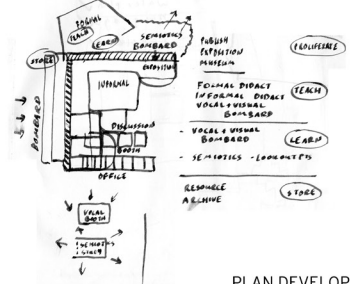 FORMAL
TEACH
LEARN
SEMIOTICS
BOMBARD
STORE
EXPOSITION
INFORMAL
BOMBARD
DISCUSSION
BOOTH
OFFICE
VOCAL
BOOTH
SEMIOTICS
PUBLISH
EXPOSITION
MUSEUM
PROLIFERATE
FORMAL DIDACT
INFORMAL DIDACT
VOCAL + VISUAL
BOMBARD
TEACH
- VOCAL + VISUAL
BOMBARD
LEARN
- SEMIOTICS - LOOKOUT PTS
RESOURCE
ARCHIVE
STORE
PLAN DEVELOP